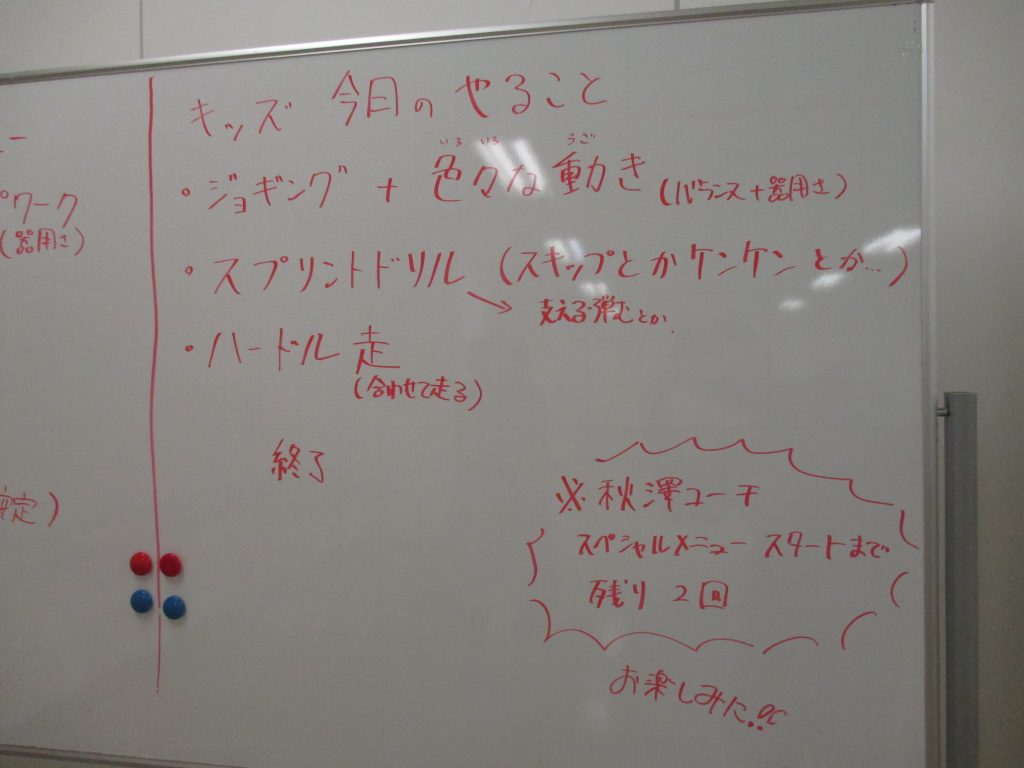 ー
プワーク
(器用さ)
安定)
キッズ 今日の やること
いろ いろ うご
・ジョギング + 色々な動き (バランス+器用さ)
・スプリントドリル (スキップとかケンケンとか…)
支える・弾むとか.
・ハードル走
(合わせて走る)
終了
※秋澤コーチ
スペシャルメニュー スタートまで
残り 2回
お楽しみに!!